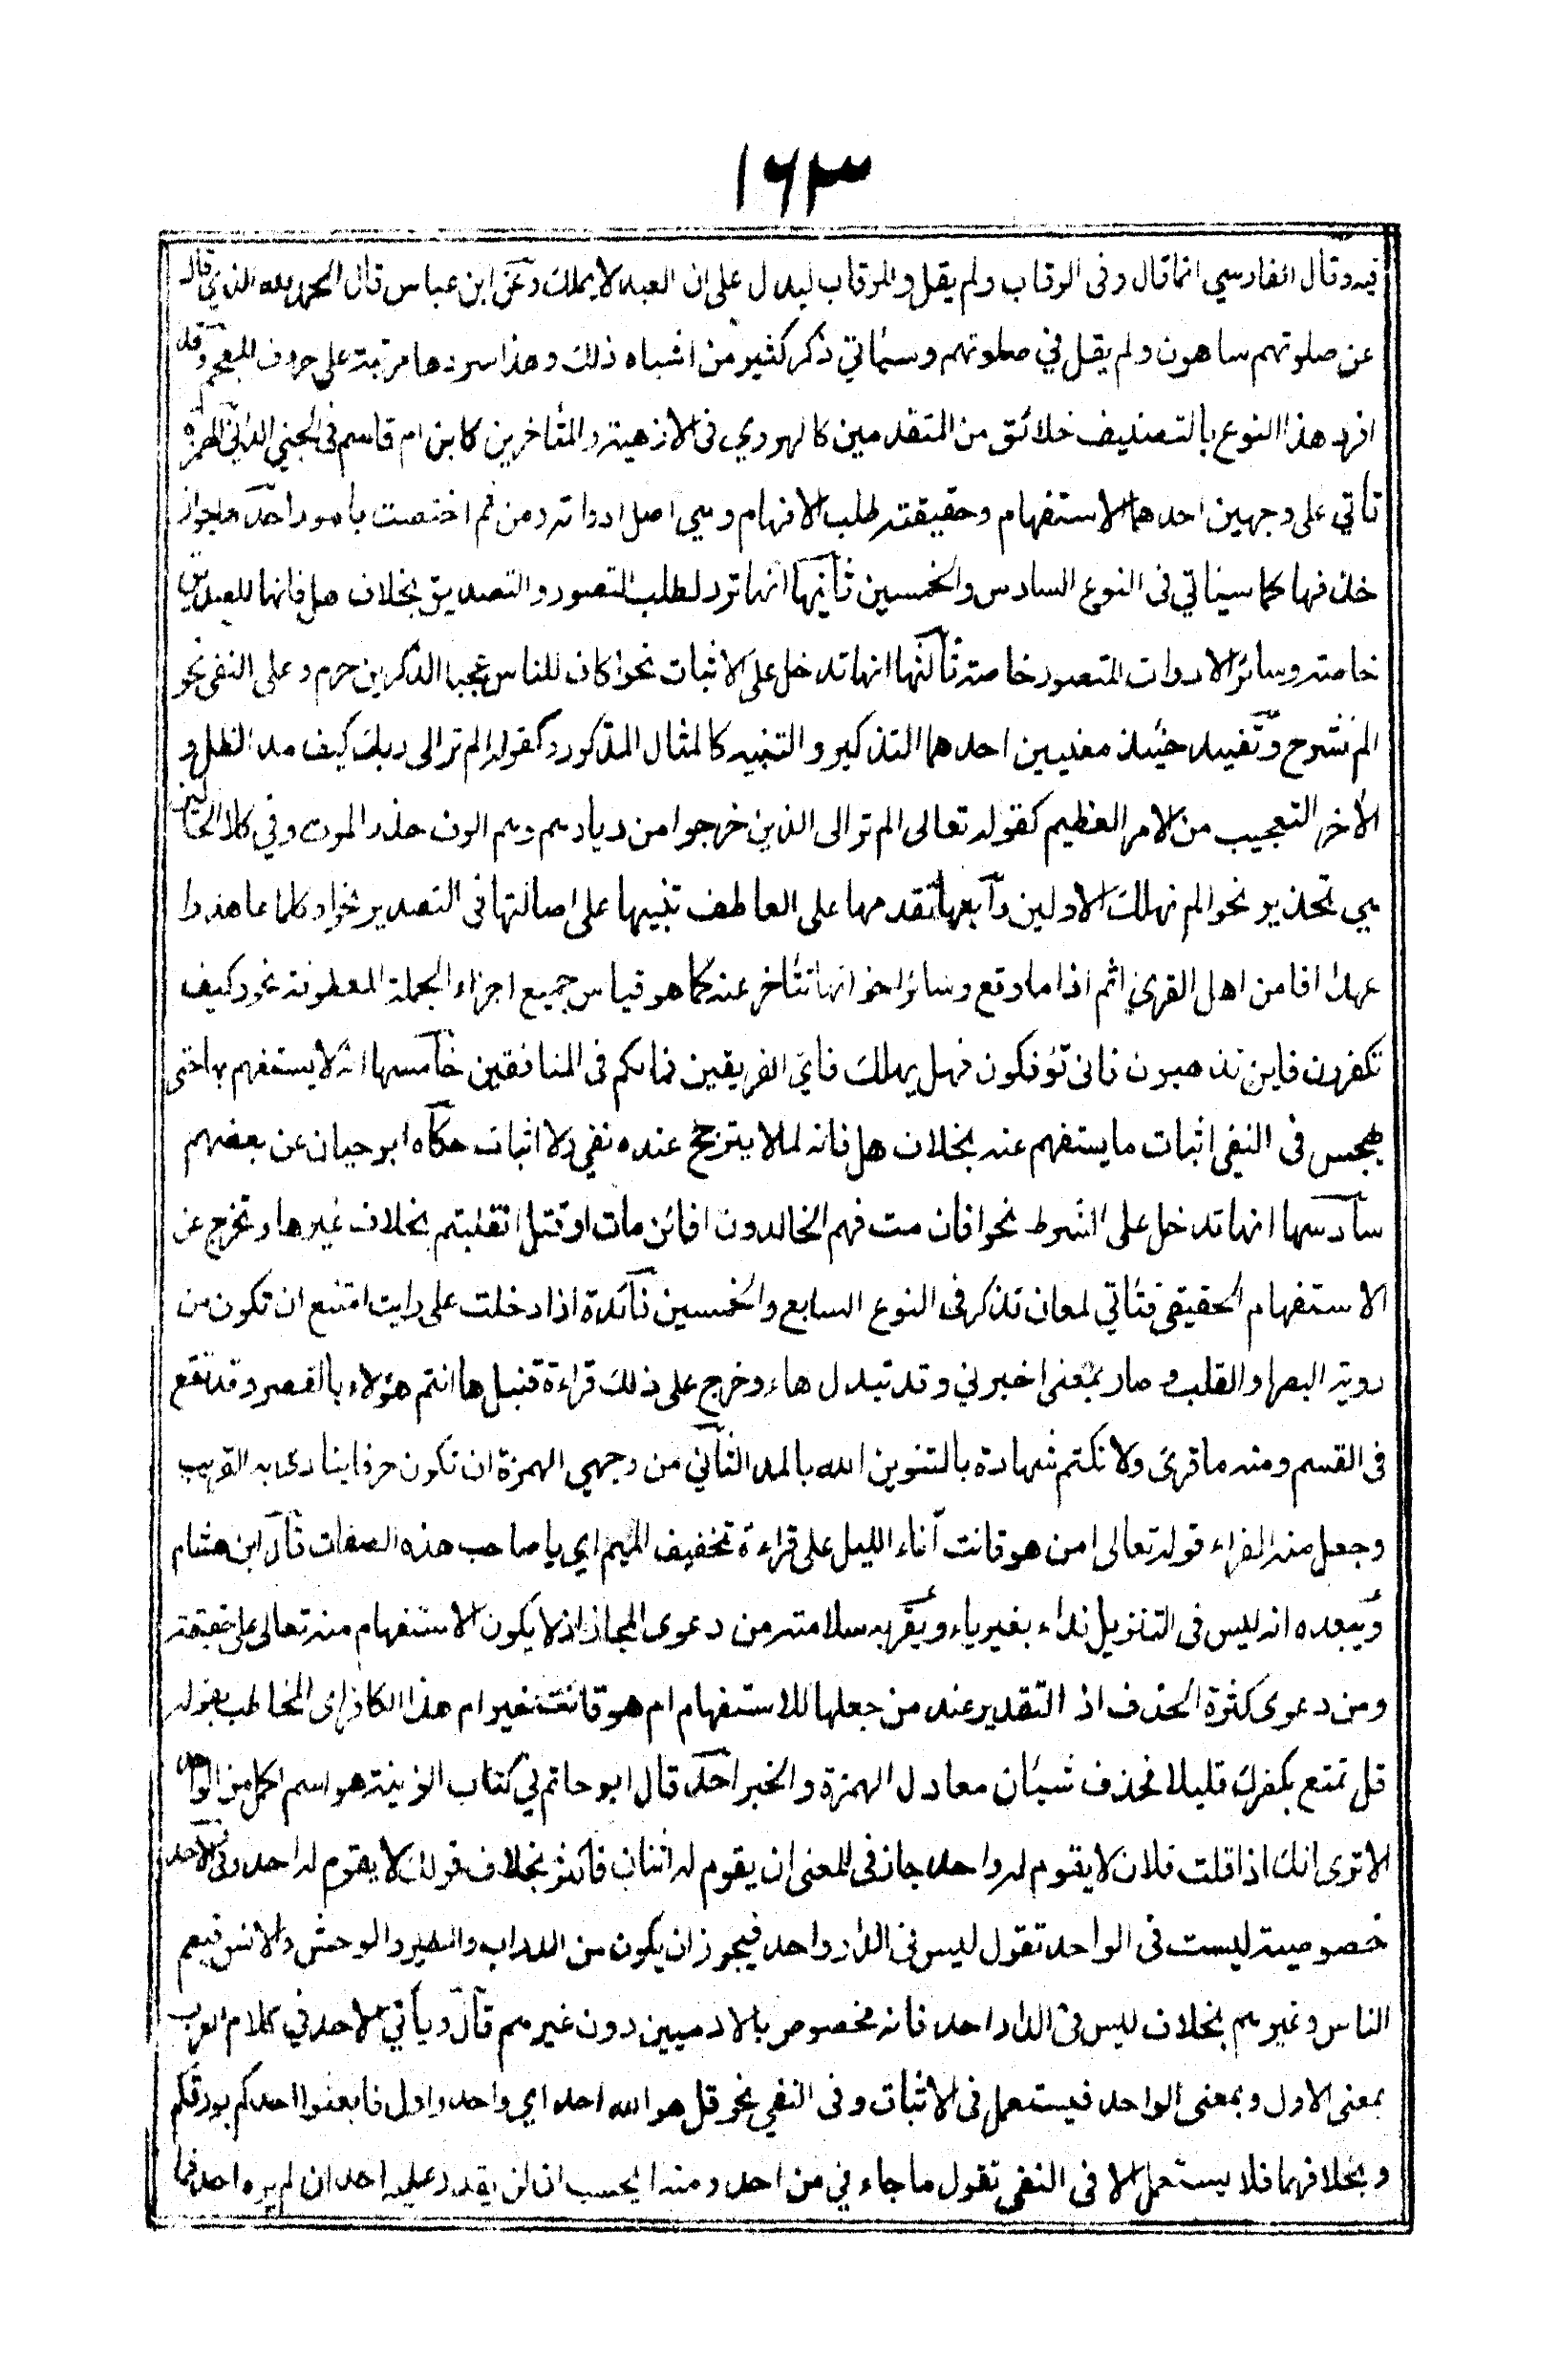 ١٦٣
فيه وقال الفارسي انما قال وفى الرقاب ولم يقل وللرقاب ليدل على ان العبد لا يملك وعن ابن عباس قال الحمد لله الذي قال
عن صلوتهم ساهون ولم يقل في صلوتهم وسياتي ذكر كثير من اشباه ذلك وهذا سردها مرتبة على حروف المعجم وقد
افرد هذا النوع بالتصنيف خلائق من المتقدمين كالهروي فى الازهية والمتأخرين كابن ام قاسم فى الجني الداني الهمزة
تأتي على وجهين احدهما الاستفهام وحقيقته طلب الافهام وهي اصل ادواته ومن ثم اختصت بامور احدها جواز
حذفها كما سيأتي فى النوع السادس والخمسين ثانيها انها ترد لطلب التصور والتصديق بخلاف هل فانها للتصديق
خاصة وسائر الادوات للتصور خاصة ثالثها انها تدخل على الاثبات نحو اكان للناس عجبا آلذكرين حرم وعلى النفى نحو
الم نشرح وتفيد حينئذ معنيين احدهما التذكير والتنبيه كالمثال المذكور وكقوله الم تر الى ربك كيف مد الظل و
الآخر التعجيب من الامر العظيم كقوله تعالى الم تر الى الذين خرجوا من ديارهم وهم الوف حذر الموت وفي كلا الحالين
هي تحذير نحو الم نهلك الاولين رابعها تقدمها على العاطف تنبيها على اصالتها فى التصدير نحو اوكلما عاهدوا
عهدا افامن اهل القرى اثم اذا ما وقع وسائر اخواتها تتأخر عنه كما هو قياس جميع اجزاء الجملة المعطوفة نحو وكيف
تكفرون فاين تذهبون فانى تؤفكون فهل يهلك فاي الفريقين فمالكم فى المنافقين خامسها انه لا يستفهم بها حتى
يهجس فى النفى اثبات ما يستفهم عنه بخلاف هل فانه لما لا يترجح عنده نفي ولا اثبات حكاه ابو حيان عن بعضهم
سادسها انها تدخل على الشرط نحو افان مت فهم الخالدون افائن مات او قتل انقلبتم بخلاف غيرها وتخرج عن
الاستفهام الحقيقى فتأتي لمعان تذكر فى النوع السابع والخمسين فائدة اذا دخلت على رايت امتنع ان تكون من
روية البصر او القلب وصار بمعنى اخبرني وقد تبدل هاء وخرج على ذلك قراءة قنبل ها انتم هؤلاء بالقصر وقد تقع
فى القسم ومنه ما قرئ ولا نكتم شهادة بالتنوين الله بالمد الثاني من وجهي الهمزة ان تكون حرفا ينادى به القريب
وجعل منه الفراء قوله تعالى امن هو قانت آناء الليل على قراءة تخفيف الميم اي يا صاحب هذه الصفات قال ابن هشام
ويبعده انه ليس فى التنزيل نداء بغير ياء ويقربه سلامته من دعوى المجاز اذ لا يكون الاستفهام منه تعالى على حقيقته
ومن دعوى كثرة الحذف اذ التقدير عند من جعلها للاستفهام ام هو قانت خير ام هذا الكافر اى المخاطب بقوله
قل تمتع بكفرك قليلا فحذف شيئان معادل الهمزة والخبر احد قال ابو حاتم في كتاب الزينة هو اسم اكمل من الواحد
الا ترى انك اذا قلت فلان لا يقوم له واحد جاز فى المعنى ان يقوم له اثنان فاكثر بخلاف قولك لا يقوم له احد وفى الاحد
خصوصية ليست فى الواحد تقول ليس فى الدار واحد فيجوز ان يكون من الدواب والطير والوحش والانس فيعم
الناس وغيرهم بخلاف ليس فى الدار احد فانه مخصوص بالادميين دون غيرهم قال ويأتي الاحد في كلام العرب
بمعنى الاول وبمعنى الواحد فيستعمل فى الاثبات وفى النفي نحو قل هو الله احد اي واحد واول فابعثوا احدكم بورقكم
وبخلافهما فلا يستعمل الا فى النفى تقول ما جاءني من احد ومنه ايحسب ان لن يقدر عليه احد ان لم يره احد فما